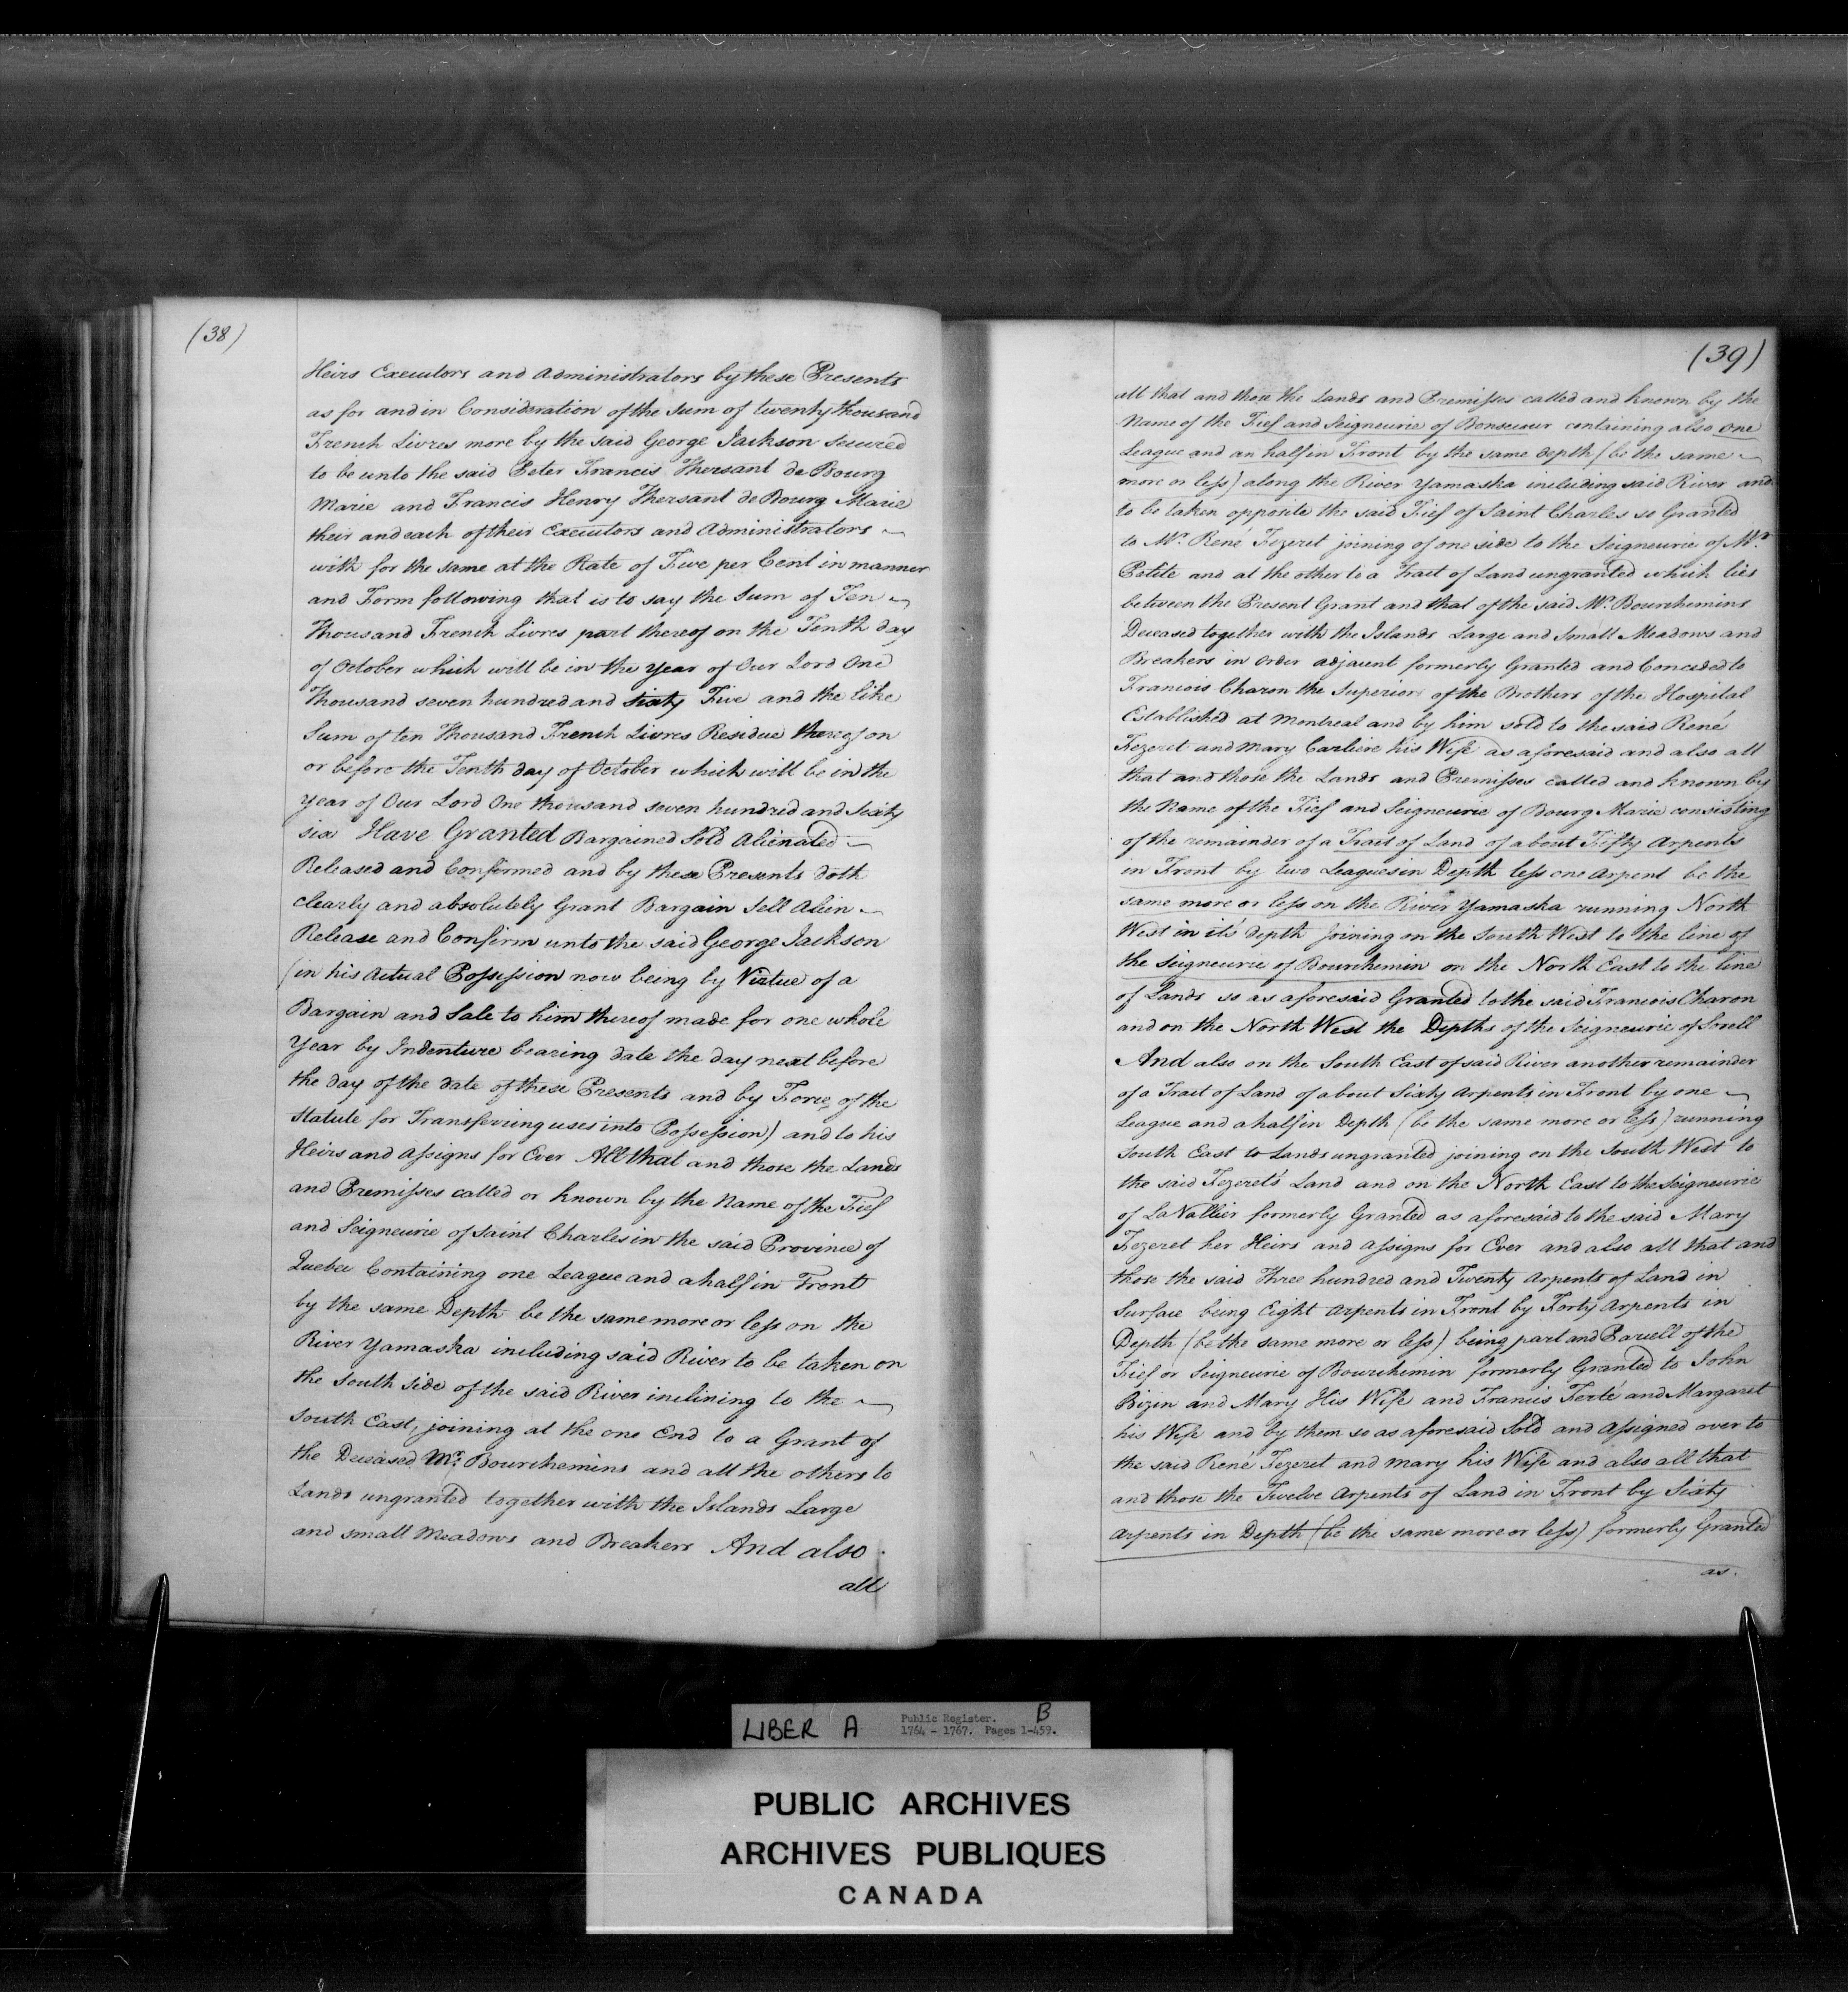 (38)
Heirs Executors and Administrators by these Presents
as for and in Consideration of the Sum of twenty thousand
French Livres more by the said George Jackson secured
to be unto the said Peter Francis Thersant de Bourg
Marie and Francis Henry Thersant de Bourg Marie
their and each of their Executors and Administrators
with for the same at the Rate of Five per Cent in manner
and Form following that is to say the Sum of Ten
Thousand French Livres part thereof on the Tenth day
of October which will be in the year of Our Lord One
Thousand seven hundred and sixty Five and the like
Sum of ten Thousand French Livres Residue thereof on
or before the Tenth day of October which will be in the
year of Our Lord One thousand seven hundred and Sixty
six Have Granted Bargained Sold Alienated
Released and Confirmed and by these Presents doth
clearly and absolutely Grant Bargain Sell Alien
Release and Confirm unto the said George Jackson
(in his actual Possession now being by Virtue of a
Bargain and Sale to him thereof made for one whole
Year by Indenture bearing date the day next before
the day of the date of these Presents and by Force of the
Statute for Transferring uses into Possession) and to his
Heirs and Assigns for Ever All that and those the Lands
and Premisses called or known by the Name of the Fief
and Seigneurie of Saint Charles in the said Province of
Quebec Containing one League and a half in Front
by the same Depth be the same more or less on the
River Yamaska including said River to be taken on
the South Side of the said River inclining to the
South East, joining at the one End to a Grant of
the Deceased Mr. Bourchemins and all the others to
Lands ungranted together with the Islands Large
and small Meadows and Breakers And also
all
(39)
all that and those the Lands and Premisses called and known by the
Name of the Fief and Seigneurie of Bonsecour containing also one
League and an half in Front by the same depth (be the same
more or less) along the River Yamaska including said River and
to be taken opposite the said Fief of Saint Charles so Granted
to Mr. René Fezeret joining of one side to the Seigneurie of Mr.
Petite and at the other to a Tract of Land ungranted which lies
between the Present Grant and that of the said Mr. Bourchemins
Deceased together with the Islands Large and Small Meadows and
Breakers in Order adjacent formerly Granted and Conceded to
Francois Charon the Superior of the Brothers of the Hospital
Established at Montreal and by him sold to the said René
Fezeret and Mary Carliere his Wife as aforesaid and also all
that and those the Lands and Premisses called and known by
the Name of the Fief and Seigneurie of Bourg Marie consisting
of the remainder of a Tract of Land of about Fifty Arpents
in Front by two Leagues in Depth less one Arpent be the
same more or less on the River Yamaska running North
West in it's depth joining on the South West to the line of
the Seigneurie of Bourchemin on the North East to the line
of Lands so as aforesaid Granted to the said Francois Charon
and on the North West the Depths of the Seigneurie of Sorell
And also on the South East of said River another remainder
of a Tract of Land of about Sixty Arpents in Front by one
League and a half in Depth (be the same more or less) running
South East to Lands ungranted joining on the South West to
the said Fezeret's Land and on the North East to the Seigneurie
of LaVallier formerly Granted as aforesaid to the said Mary
Fezeret her Heirs and Assigns for Ever and also all that and
those the said Three hundred and Twenty Arpents of Land in
Surface being Eight Arpents in Front by Forty Arpents in
Depth (be the same more or less) being part and Parcell of the
Fief or Seigneurie of Bourchemin formerly Granted to John
Bizin and Mary His Wife and Francis Ferté and Margaret
his Wife and by them so as aforesaid Sold and Assigned over to
the said René Fezeret and Mary his Wife and also all that
and those the Twelve Arpents of Land in Front by Sixty
Arpents in Depth (be the same more or less) formerly Granted
as
LIBER A
Public Register. B
1764 - 1767. Pages 1-459.
PUBLIC ARCHIVES
ARCHIVES PUBLIQUES
CANADA